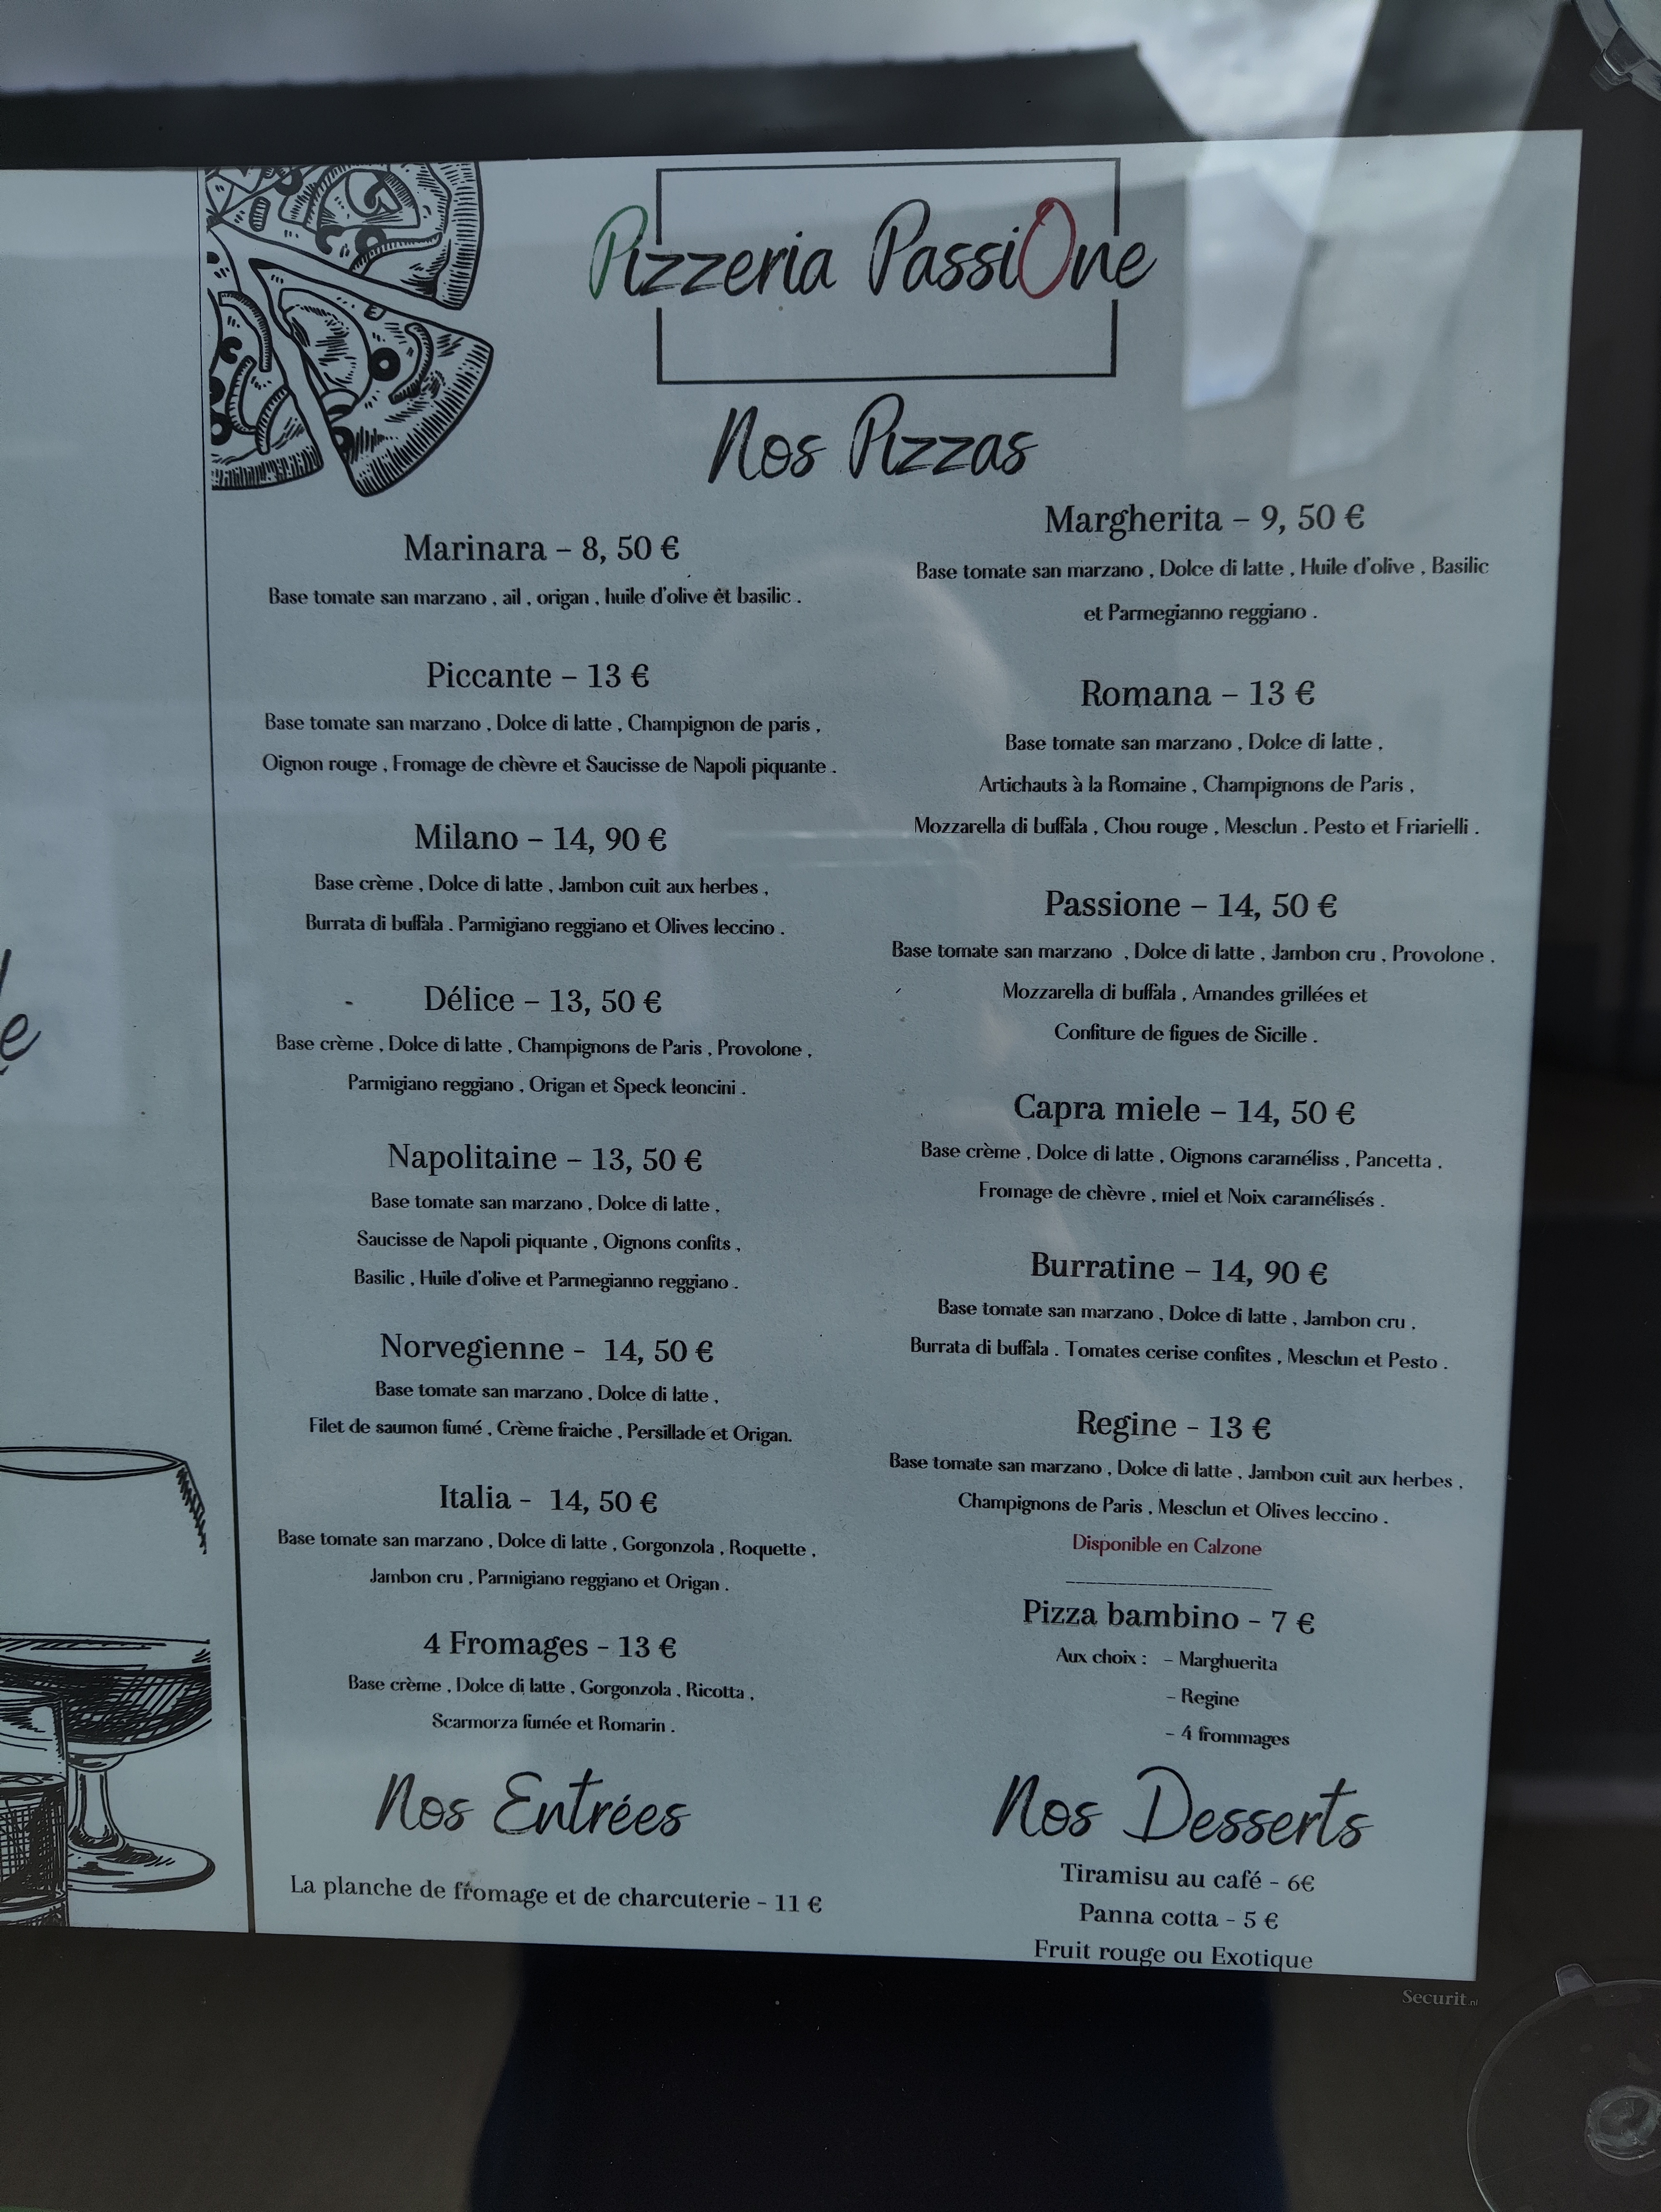 Pizzeria PassiOne
Nos Pizzas
Marinara – 8, 50 €
Base tomate san marzano , ail , origan , huile d'olive êt basilic .
Piccante – 13 €
Base tomate san marzano , Dolce di latte , Champignon de paris ,
Oignon rouge , Fromage de chèvre et Saucisse de Napoli piquante .
Milano – 14, 90 €
Base crème , Dolce di latte , Jambon cuit aux herbes ,
Burrata di buffala . Parmigiano reggiano et Olives leccino .
Délice – 13, 50 €
Base crème , Dolce di latte , Champignons de Paris , Provolone ,
Parmigiano reggiano , Origan et Speck leoncini .
Napolitaine – 13, 50 €
Base tomate san marzano , Dolce di latte ,
Saucisse de Napoli piquante , Oignons confits ,
Basilic , Huile d'olive et Parmegianno reggiano .
Norvegienne - 14, 50 €
Base tomate san marzano , Dolce di latte ,
Filet de saumon fumé , Crème fraiche , Persillade et Origan.
Italia - 14, 50 €
Base tomate san marzano , Dolce di latte , Gorgonzola , Roquette ,
Jambon cru , Parmigiano reggiano et Origan .
4 Fromages - 13 €
Base crème , Dolce di latte , Gorgonzola , Ricotta ,
Scarmorza fumée et Romarin .
Nos Entrées
La planche de fromage et de charcuterie - 11 €
Margherita – 9, 50 €
Base tomate san marzano , Dolce di latte , Huile d'olive , Basilic
et Parmegianno reggiano .
Romana – 13 €
Base tomate san marzano , Dolce di latte ,
Artichauts à la Romaine , Champignons de Paris ,
Mozzarella di buffala , Chou rouge , Mesclun . Pesto et Friarielli .
Passione – 14, 50 €
Base tomate san marzano , Dolce di latte , Jambon cru , Provolone .
Mozzarella di buffala , Amandes grillées et
Confiture de figues de Sicille .
Capra miele – 14, 50 €
Base crème , Dolce di latte , Oignons caraméliss , Pancetta ,
Fromage de chèvre , miel et Noix caramélisés .
Burratine – 14, 90 €
Base tomate san marzano , Dolce di latte , Jambon cru ,
Burrata di buffala . Tomates cerise confites , Mesclun et Pesto .
Regine - 13 €
Base tomate san marzano , Dolce di latte , Jambon cuit aux herbes ,
Champignons de Paris , Mesclun et Olives leccino .
Disponible en Calzone
Pizza bambino - 7 €
Aux choix : - Marghuerita
- Regine
- 4 frommages
Nos Desserts
Tiramisu au café - 6€
Panna cotta - 5 €
Fruit rouge ou Exotique
Securit.nl